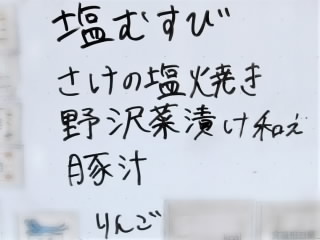 塩むすび
さけの塩焼き
野沢菜漬け和え
豚汁
りんご